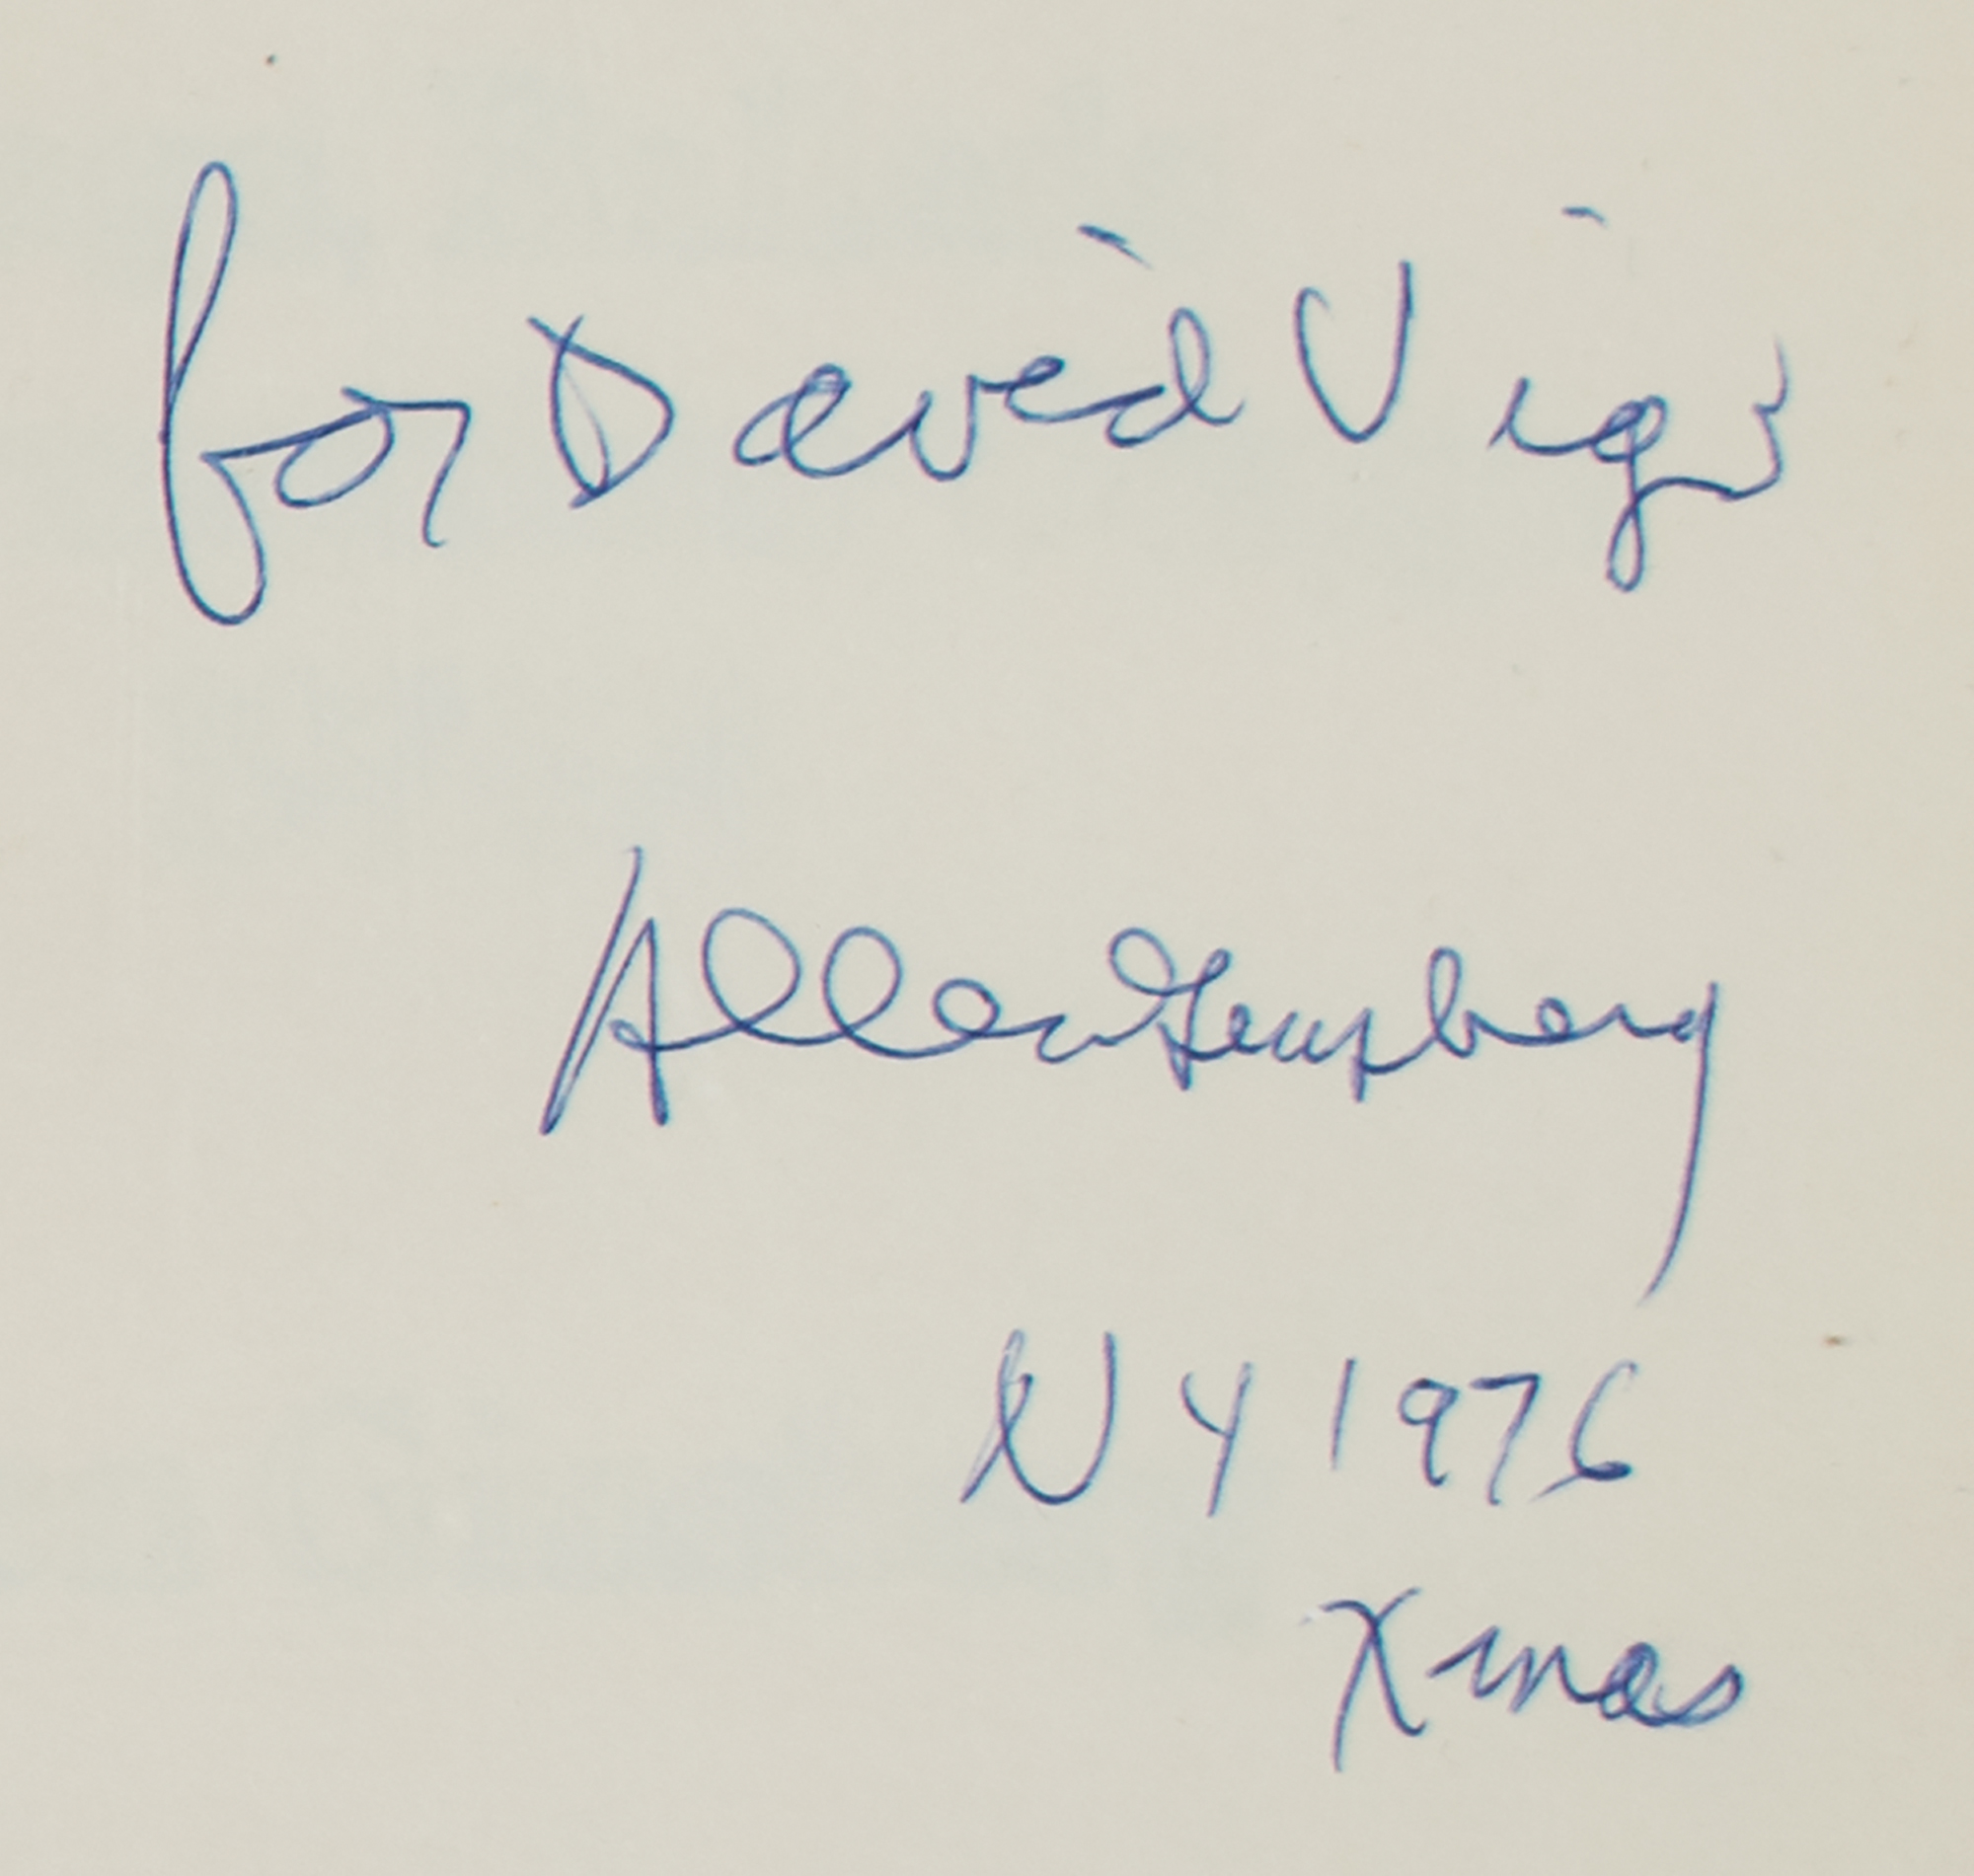 for David Vigs
Allen Ginsberg
NY 1976
Xmas